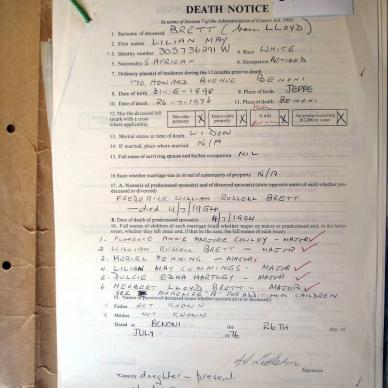 DEATH NOTICE
In terms of Section 7 of the Administration of Estates Act, 1965
1. Surname of deceased BRETT (born LLOYD)
2. First names LILIAN MAY
3. Identity number 303736291 W 4. Race WHITE
5. Nationality S. AFRICAN 6. Occupation RETIRED
7. Ordinary place(s) of residence during the 12 months prior to death
170, HOWARD AVENUE BENONI
8. Date of birth 31-5-1898 9. Place of birth JEPPE
10. Date of death 26-7-1976 11. Place of death BENONI
12. Has the deceased left (mark with a cross where applicable) Movable property X Immovable property X A will X An estate exceeding in value X
13. Marital status at time of death WIDOW
14. If married, place where married N/A
15. Full name of surviving spouse and his/her occupation NIL
16. State whether marriage was in or out of community of property N/A
17. A. Name(s) of predeceased spouse(s) and of divorced spouse(s) (state opposite name of each whether predeceased or divorced)
FREDERICK WILLIAM RUSSELL BRETT
— died 4/7/1954
B. Date of death of predeceased spouse(s) 4/7/1954
18. Full names of children of each marriage
1. FLORENCE ANNIE MARJORIE COWLEY - MAJOR
2. WILLIAM RUSSELL BRETT - MAJOR
3. MURIEL PENNING - MAJOR
4. LILIAN MAY CUMMINGS - MAJOR
5. DULCIE EDNA HARTLEY - MAJOR
6. HERBERT LLOYD BRETT - MAJOR
SEE ANNEXURE A FOR ADDITIONAL CHILDREN
19. Names of parents of deceased (state whether parents alive or deceased)
Father NOT KNOWN
Mother NOT KNOWN
Dated at BENONI the 26TH day of
JULY 1976
Signature
*Capacity daughter - present